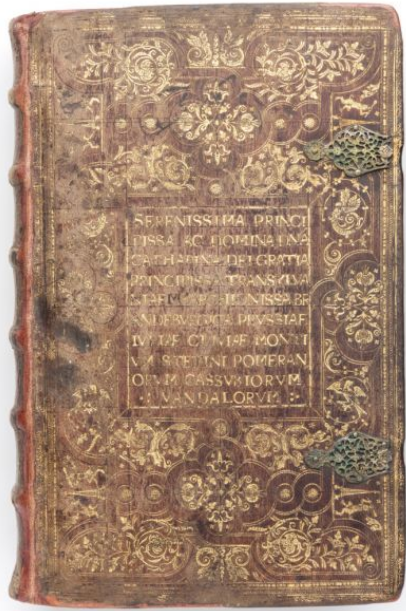 SERENISSIMA PRINCI
PISSA AC DOMINA DNA
CATHARINA DEI GRATIA
PRINCIPISSA TRANSYLVA
NIAE
IVLIAE CLIVIAE MONTI
VM STETINI POMERAN
ORVM CASSVBIORVM
: VANDALORVM :